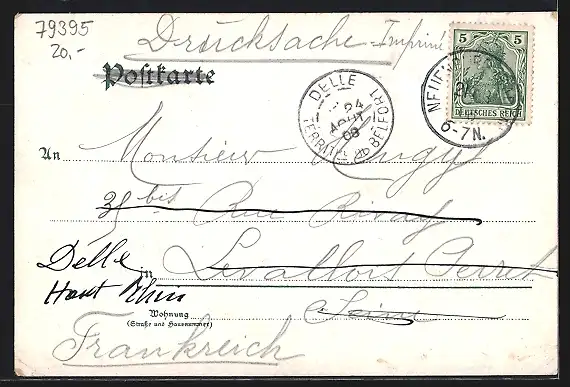 79395
20,-
Drucksache - Imprimé
Postkarte
5 5
DEUTSCHES REICH
6-7N.
DELLE
24
AOUT
08
TERRIT. DE BELFORT
An Monsieur
35 bis Rue Rivay
Delle
in Levallois Perret
Haut Rhin
Seine
Wohnung
(Straße und Hausnummer)
Frankreich